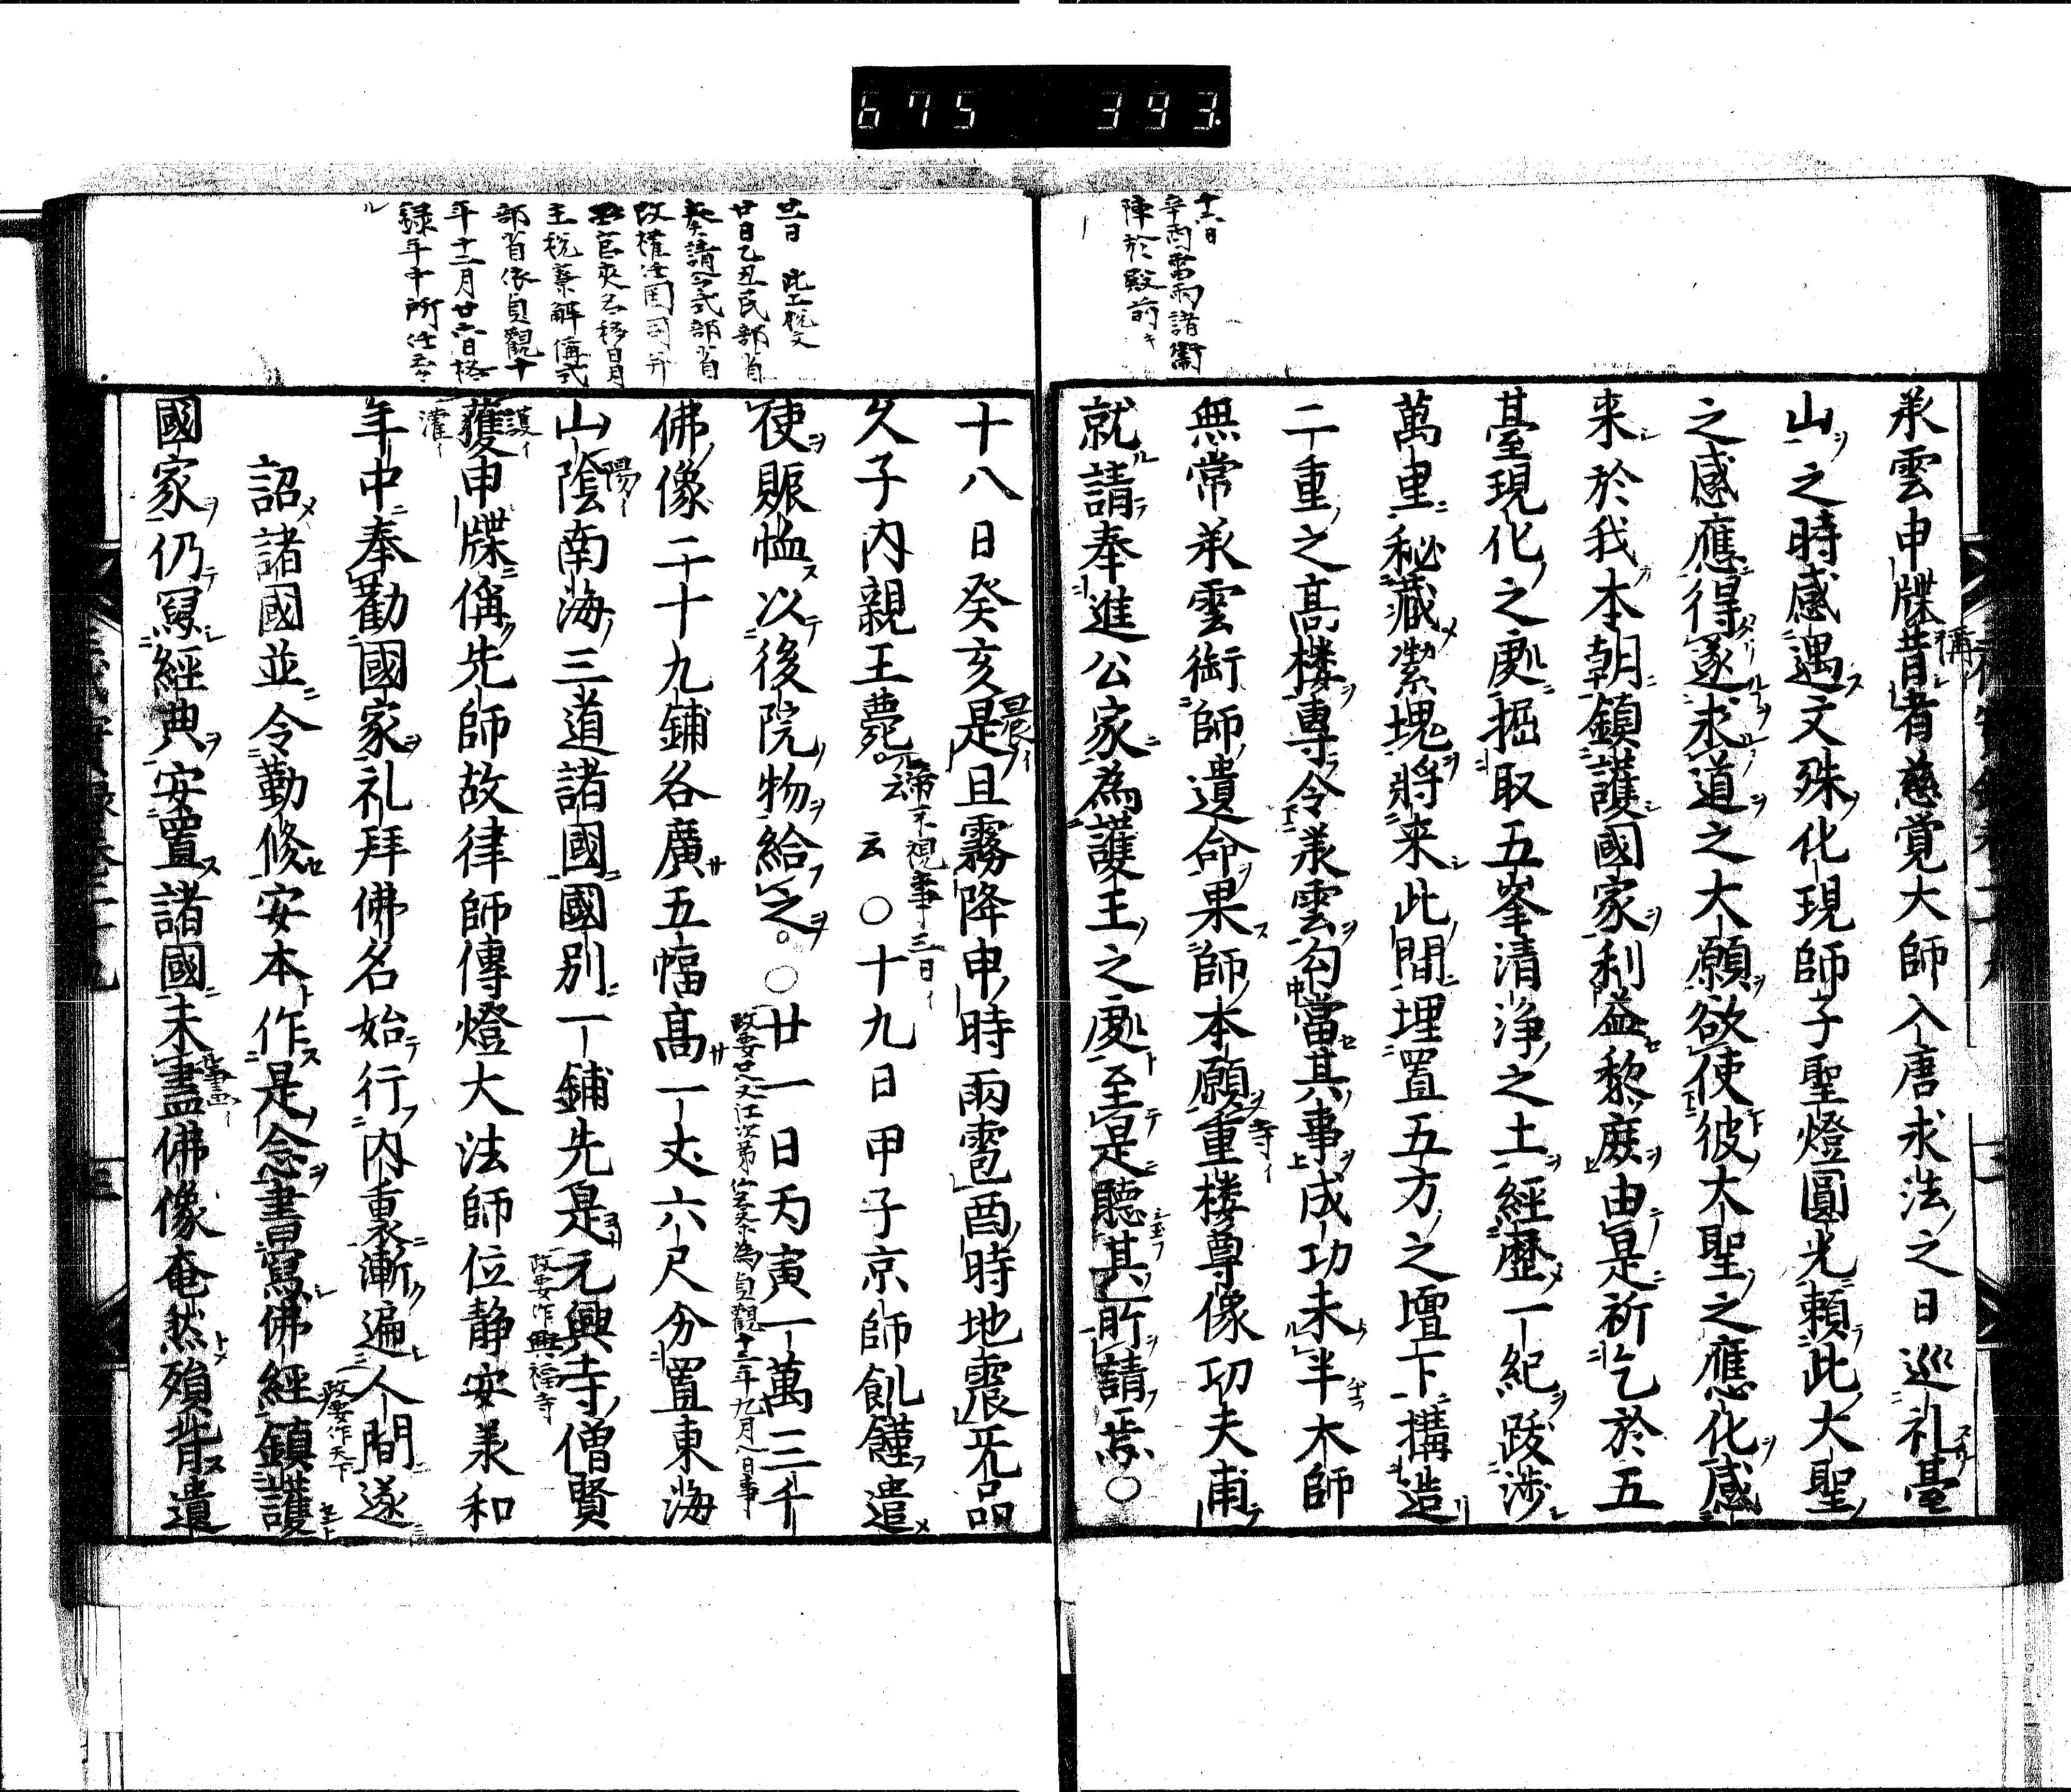 675 393.
十六日
辛酉雷雨諸衛
陣於殿前
承雲申牒昔者慈覺大師入唐求法之日巡礼臺
山之時感遇文殊化現師子聖燈圓光頼此大聖
之感應得遂求道之大願欲使彼大聖之應化感
来於我本朝鎮護國家利益黎庶由是祈乞於五
臺現化之處掘取五峯清浄之土經歴一紀跋渉
萬里秘藏縈塊將来此間埋置五方之壇下構造
二重之髙楼專令承雲勾當其事成功未半大師
無常承雲銜師遺命果師本願重楼尊像功夫甫
就請奉進公家為護王之處至是聽其所請焉○
十八日癸亥是旦霧降申時雨雹酉時地震无品
久子内親王薨帝不視事三日 云云○十九日甲子京師飢饉遣
使賑恤以後院物給之○廿一日丙寅一萬三千
佛像二十九鋪各廣五幅髙一丈六尺分置東海
山陰南海三道諸國國別一鋪先是元興寺僧賢
護申牒偁先師故律師傳燈大法師位静安承和
年中奉勸國家礼拜佛名始行内裏漸遍人間遂
詔諸國並令勤修安本作是念書寫佛經鎮護
國家仍冩經典安置諸國未畫佛像奄然殞背遺
廿日乙丑民部省
改權任國司并
主税寮解偁式
部省依貞觀十
年十二月廿六日格
政要作興福寺
政要作天下